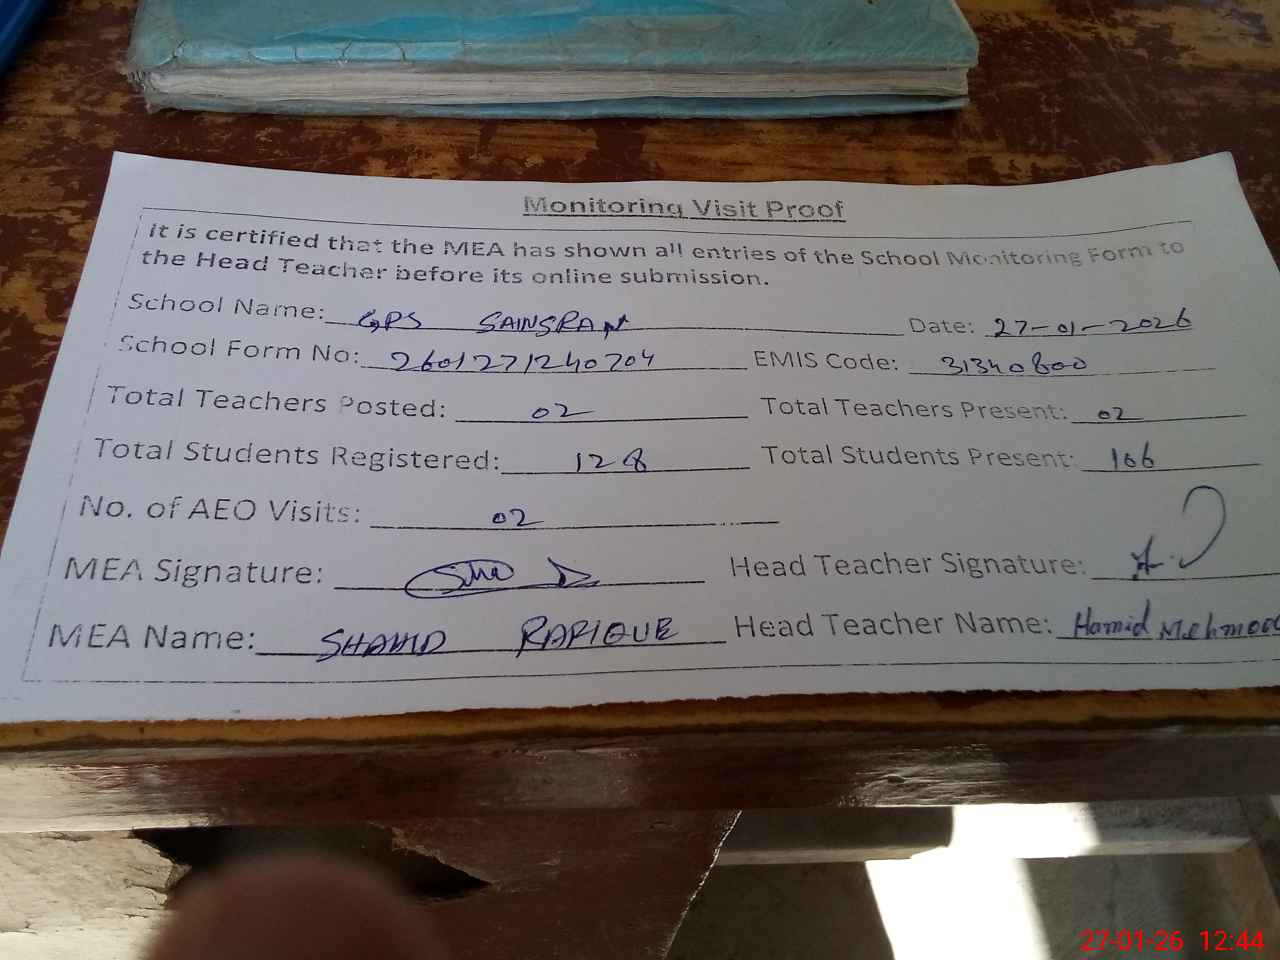 Monitoring Visit Proof
it is certified that the MEA has shown all entries of the School Monitoring Form to
the Head Teacher before its online submission.
School Name: GPS SAINSRAN Date: 27-01-2026
School Form No: 2601271240704 EMIS Code: 31340800
Total Teachers Posted: 02 Total Teachers Present: 02
Total Students Registered: 128 Total Students Present: 106
No. of AEO Visits: 02
MEA Signature: Head Teacher Signature:
MEA Name: SHAHID RAFIQUE Head Teacher Name: Hamid Mehmood
27-01-26 12:44